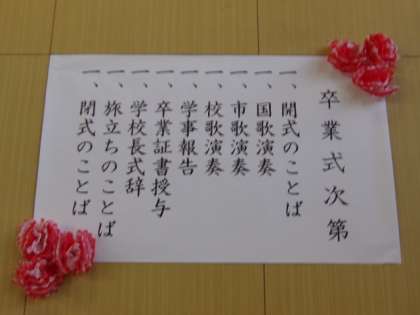 卒業式次第
一、開式のことば
一、国歌演奏
一、市歌演奏
一、校歌演奏
一、学事報告
一、卒業証書授与
一、学校長式辞
一、旅立ちのことば
一、閉式のことば